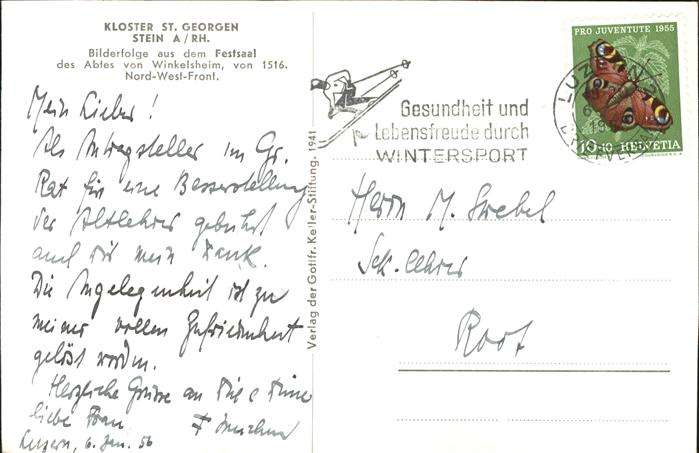 KLOSTER ST. GEORGEN
STEIN A/RH.
Bilderfolge aus dem Festsaal
des Abtes von Winkelsheim, von 1516.
Nord-West-Front.
Mein Lieber!
Als Antragsteller im Gr.
Rat für eine Besserstellung
der Altlehrer gebührt
auch Dir mein Dank.
Die Angelegenheit ist zu
meiner vollen Zufriedenheit
gelöst worden.
Herzliche Grüsse an Dich & Deine
liebe Frau
Luzern, 6. Jan. 56
Verlag der Gottfr. Keller-Stiftung. 1941
Gesundheit und
Lebensfreude durch
WINTERSPORT
PRO JUVENTUTE 1955
LUZERN
10+10 HELVETIA
Herrn M.
Sek. Lehrer
Root